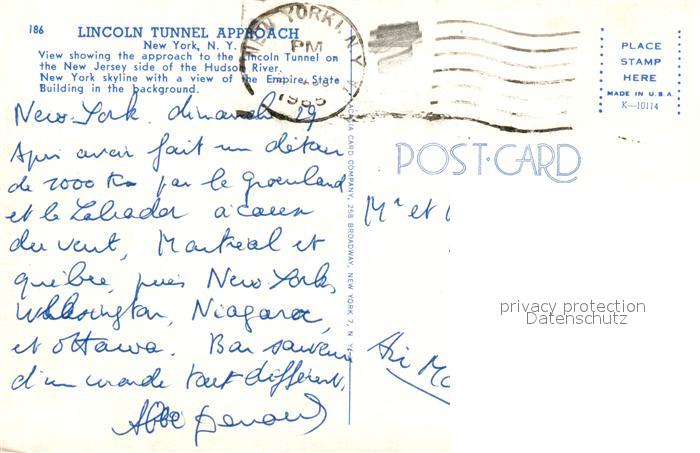 186
LINCOLN TUNNEL APPROACH
New York, N. Y.
View showing the approach to the Lincoln Tunnel on
the New Jersey side of the Hudson River.
New York skyline with a view of the Empire State
Building in the background.
NEW YORK 1, N.Y.
PM
1965
PLACE
STAMP
HERE
MADE IN U.S.A.
K—10114
POST-CARD
CARD COMPANY, 258 BROADWAY, NEW YORK 7, N. Y.
New-York dimanche 19
Après avoir fait un détour
de 2000 Km par le Groenland
et le Labrador à cause
du vent, Montréal et
Québec, puis New York,
Washington, Niagara,
et Ottawa. Bon souvenir
d'un monde tout différent.
Abbé
Mr et
Air
privacy protection
Datenschutz